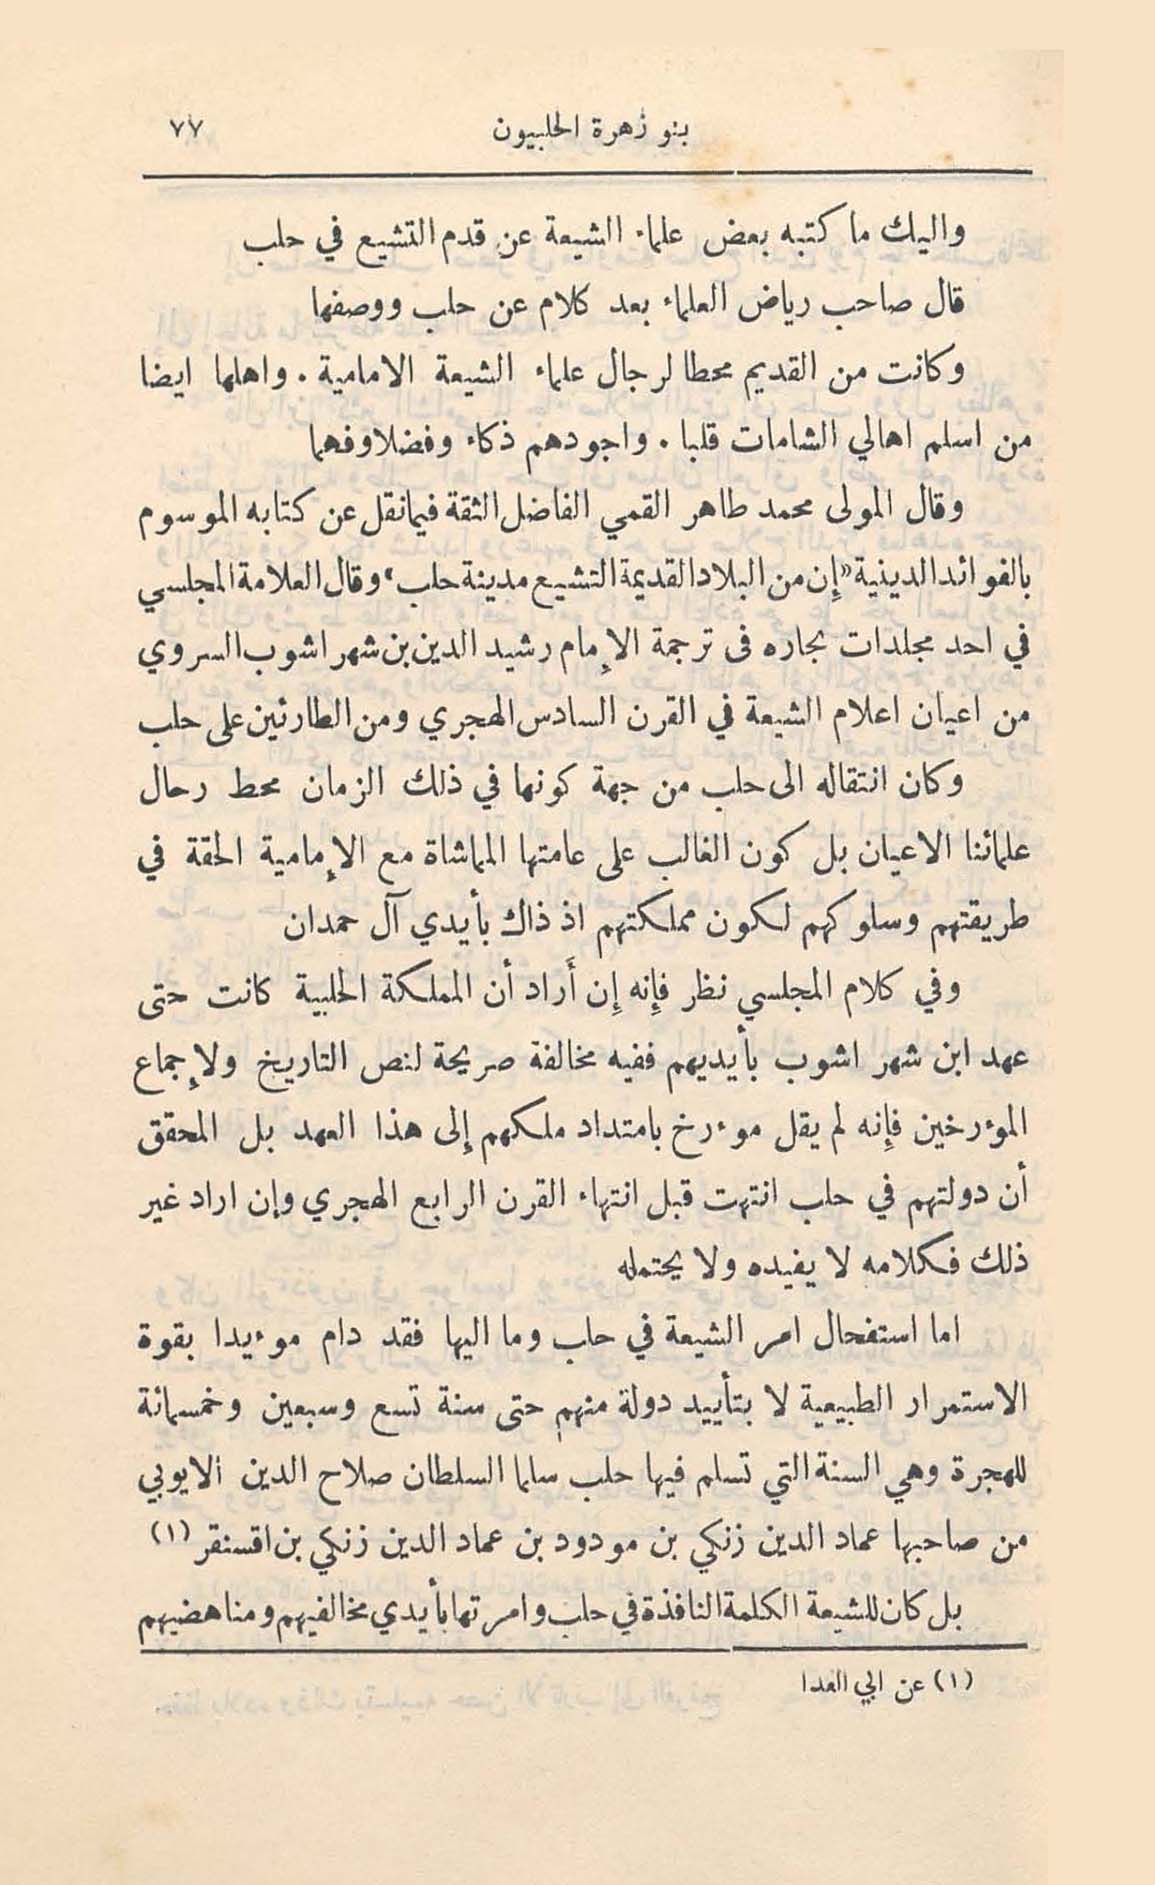 بنو زهرة الحلبيون ٧٧
واليك ما كتبه بعض علماء الشيعة عن قدم التشيع في حلب
قال صاحب رياض العلماء بعد كلام عن حلب ووصفها
وكانت من القديم محطا لرجال علماء الشيعة الامامية . واهلها ايضا
من اسلم اهالي الشامات قلبا . واجودهم ذكاء وفضلا وفهما
وقال المولى محمد طاهر القمي الفاضل الثقة فيما نقل عن كتابه الموسوم
بالفوائد الدينية «إن من البلاد القديمة التشيع مدينة حلب» وقال العلامة المجلسي
في احد مجلدات بحاره في ترجمة الإمام رشيد الدين بن شهر اشوب السروي
من اعيان اعلام الشيعة في القرن السادس الهجري ومن الطارئين على حلب
وكان انتقاله الى حلب من جهة كونها في ذلك الزمان محط رحال
علمائنا الاعيان بل كون الغالب على عامتها المماشاة مع الإمامية الحقة في
طريقتهم وسلوكهم لكون مملكتهم اذ ذاك بأيدي آل حمدان
وفي كلام المجلسي نظر فإنه إن أَراد أن المملكة الحلبية كانت حتى
عهد ابن شهر اشوب بأيديهم ففيه مخالفة صريحة لنص التاريخ ولإجماع
الموءرخين فإنه لم يقل موءرخ بامتداد ملكهم إلى هذا العهد بل المحقق
أن دولتهم في حلب انتهت قبل انتهاء القرن الرابع الهجري وإن اراد غير
ذلك فكلامه لا يفيده ولا يحتمله
اما استفحال امر الشيعة في حلب وما اليها فقد دام موءيدا بقوة
الاستمرار الطبيعية لا بتأييد دولة منهم حتى سنة تسع وسبعين وخمسمائة
للهجرة وهي السنة التي تسلم فيها حلب سلما السلطان صلاح الدين الايوبي
من صاحبها عماد الدين زنكي بن مودود بن عماد الدين زنكي بن اقسنقر (١)
بل كان للشيعة الكلمة النافذة في حلب وامرتها بأيدي مخالفيهم ومناهضيهم
(١) عن ابي الفدا